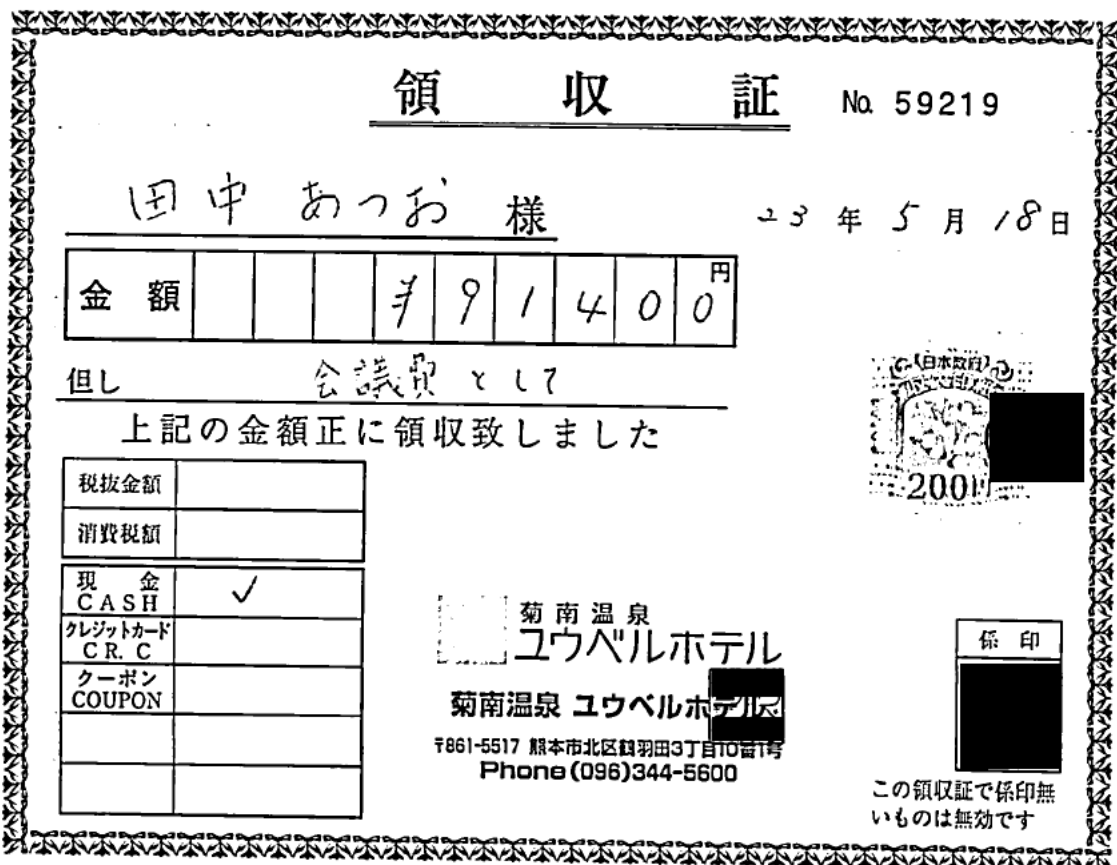 領収証 No. 59219
田中 あつお 様
23年5月18日
金額 ¥91400円
但し 会議費として
上記の金額正に領収致しました
日本政府
200
税抜金額
消費税額
現金 CASH ✓
クレジットカード CR. C
クーポン COUPON
菊南温泉
ユウベルホテル
菊南温泉 ユウベルホテル
〒861-5517 熊本市北区鶴羽田3丁目10番1号
Phone(096)344-5600
係印
この領収証で係印無
いものは無効です